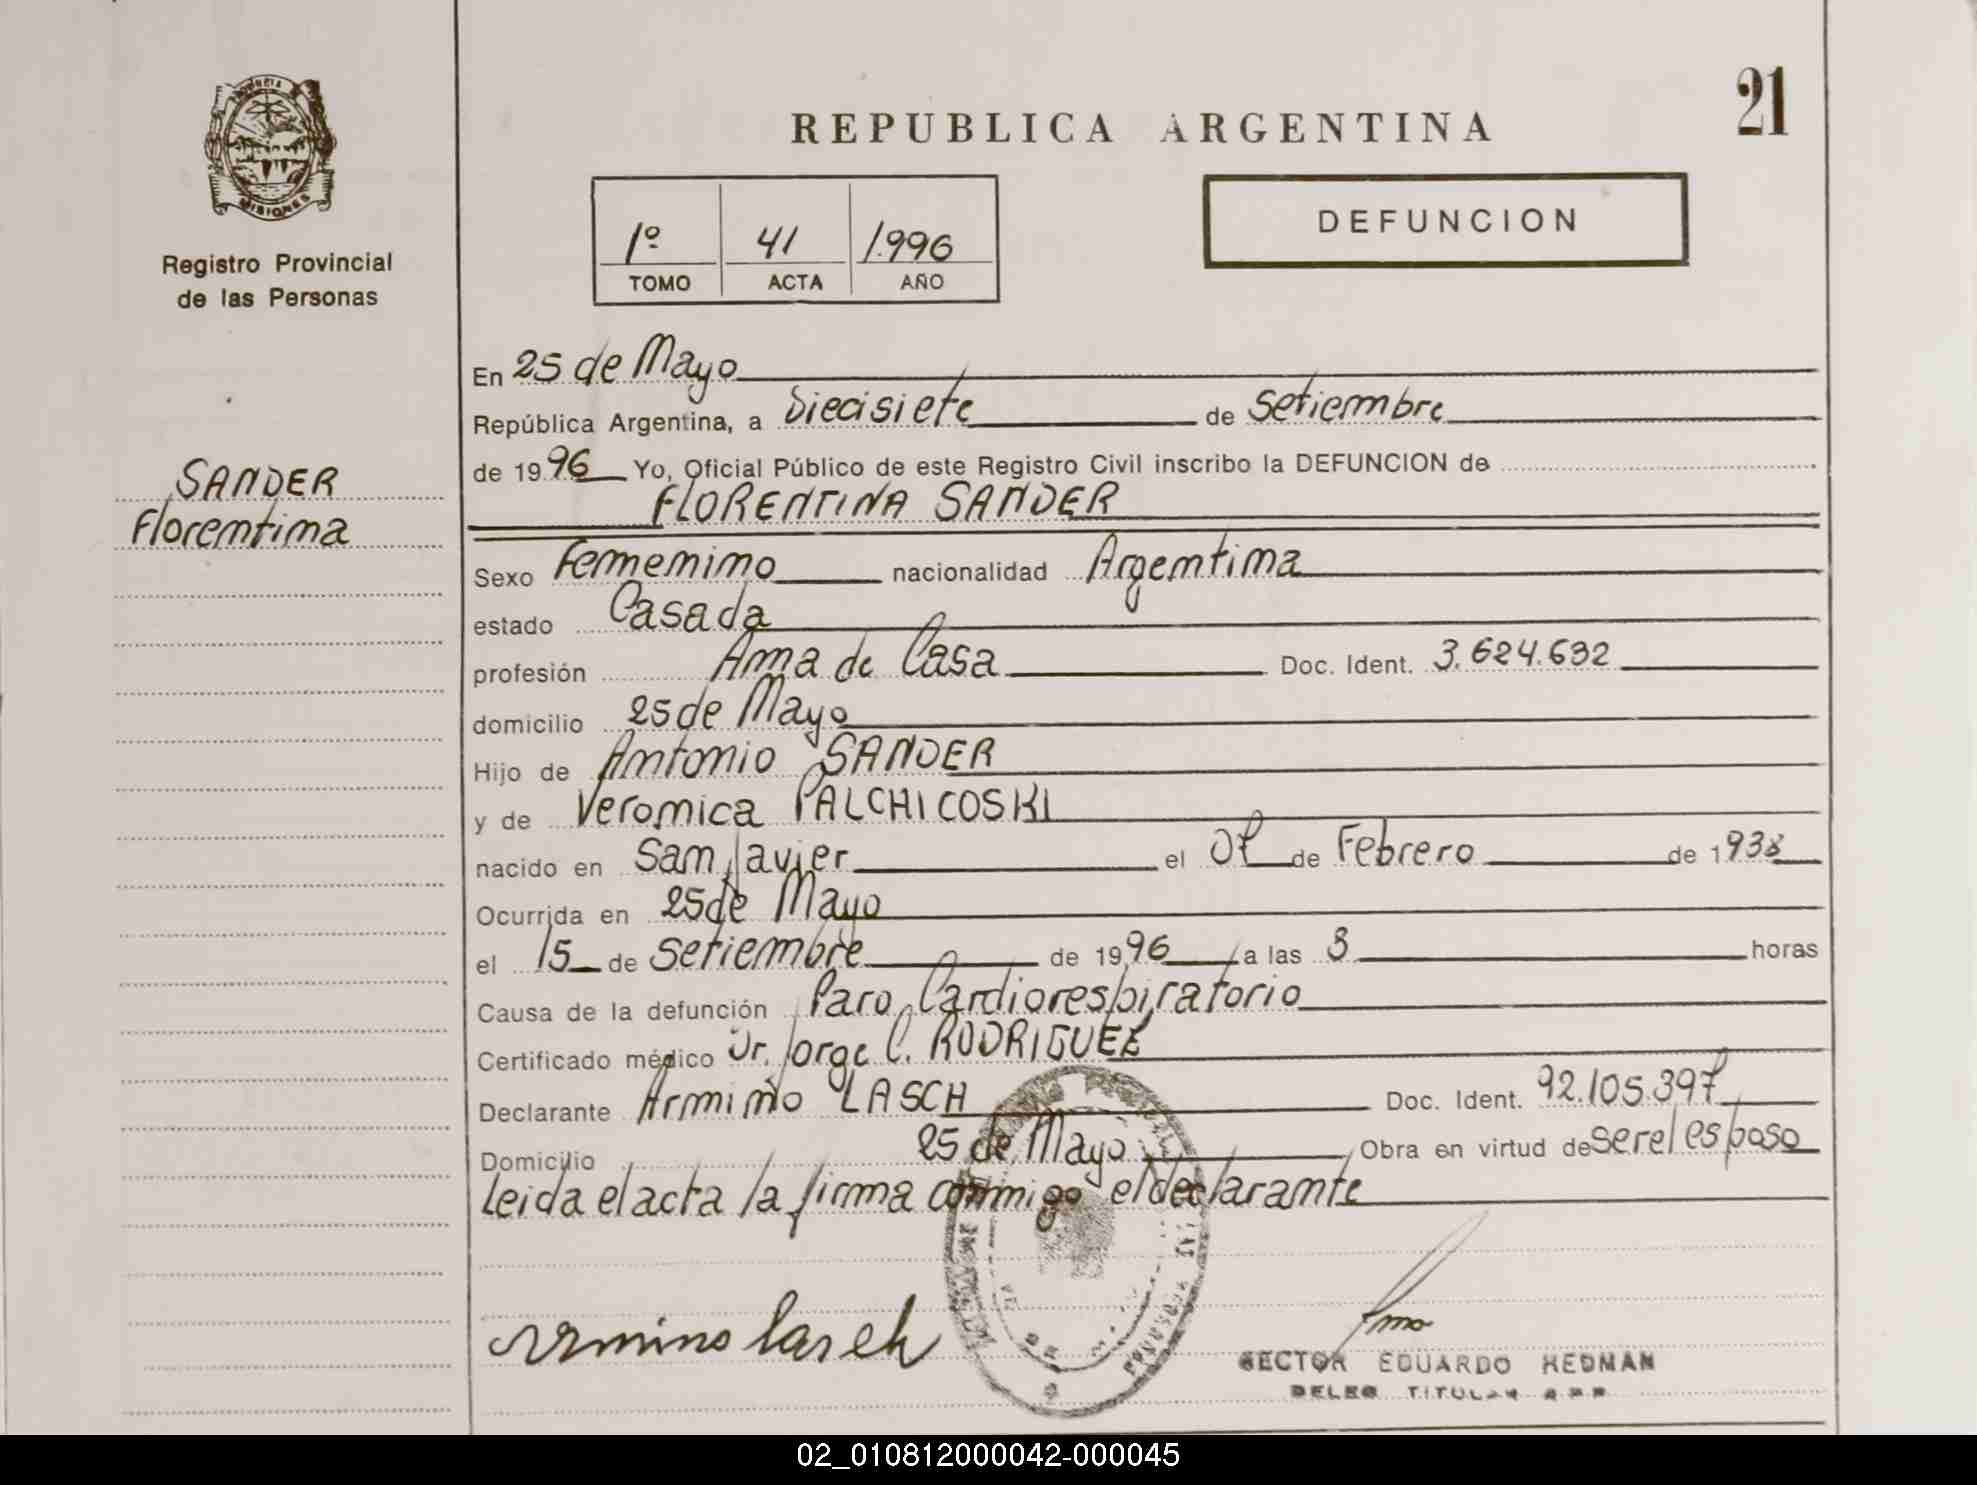 PROVINCIA
MISIONES
Registro Provincial
de las Personas
SANDER
Florentina
21
REPUBLICA ARGENTINA
1º 41 1.996
TOMO ACTA AÑO
DEFUNCION
En 25 de Mayo
República Argentina, a Diecisiete de Setiembre
de 1996 Yo, Oficial Público de este Registro Civil inscribo la DEFUNCION de
FLORENTINA SANDER
Sexo Femenino nacionalidad Argentina
estado Casada
profesión Ama de Casa Doc. Ident. 3.624.632
domicilio 25 de Mayo
Hijo de Antonio SANDER
y de Veronica PALCHICOSKI
nacido en San Javier el 07 de Febrero de 1938
Ocurrida en 25 de Mayo
el 15 de Setiembre de 1996 a las 3 horas
Causa de la defunción Paro Cardiorespiratorio
Certificado médico Dr. Jorge C. RODRIGUEZ
Declarante Armino LASCH Doc. Ident. 92.105.397
Domicilio 25 de Mayo Obra en virtud de ser el esposo
Leida el acta la firma conmigo el declarante
Armino Lasch
HECTOR EDUARDO HEDMAN
TITULAR
02_010812000042-000045